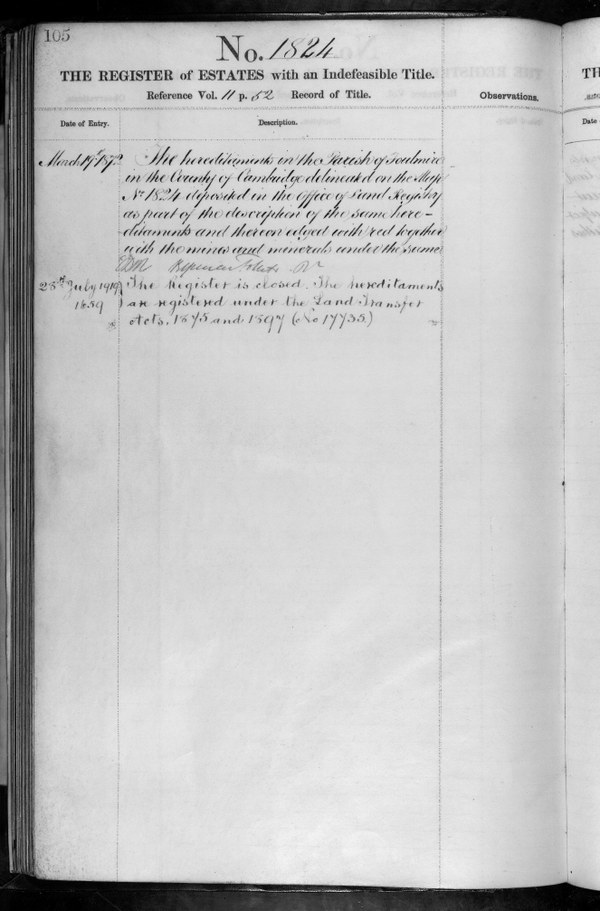 105
No. 1824
THE REGISTER of ESTATES with an Indefeasible Title.
Reference Vol. 11 p. 52 Record of Title.
Observations.
Date of Entry.
Description.
March 19th 1872
The hereditaments in the Parish of Foulmire
in the County of Cambridge delineated on the Map
No 1824 deposited in the Office of Land Registry
as part of the description of the same here-
ditaments and thereon edged with red together
with the mines and minerals under the same
25th July 1919
1859
The Register is closed. The hereditaments
are registered under the Land Transfer
Acts. 1875 and 1897 (No 17735.)
TH
Date